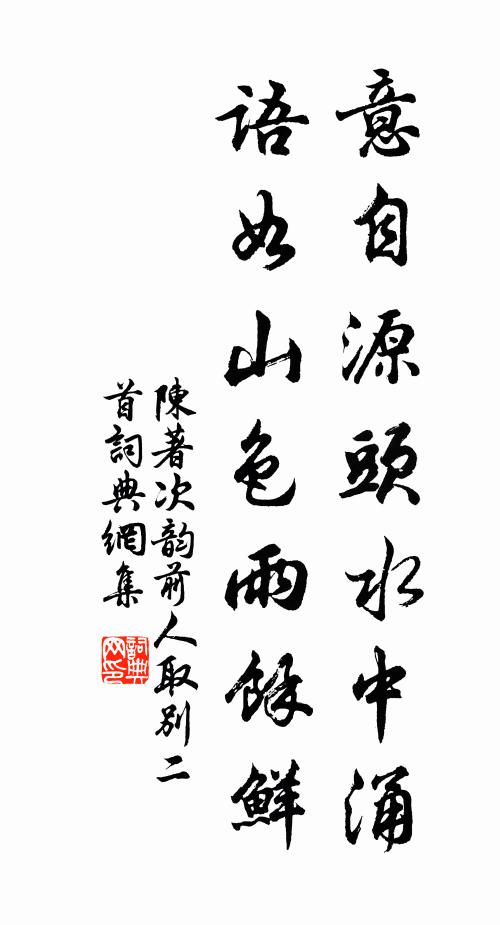 意自源頭水中涌
語如山色雨餘鮮
陳著次韵前人取別二
首詞典網集
詞典
网印